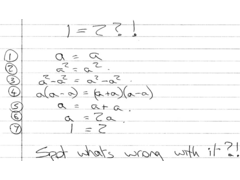 1 = 2?!
① a = a
② a² = a².
③ a²-a² = a²-a².
④ a(a-a) = (a+a)(a-a)
⑤ a = a+a.
⑥ a = 2a.
⑦ 1 = 2
Spot whats wrong with it-?!